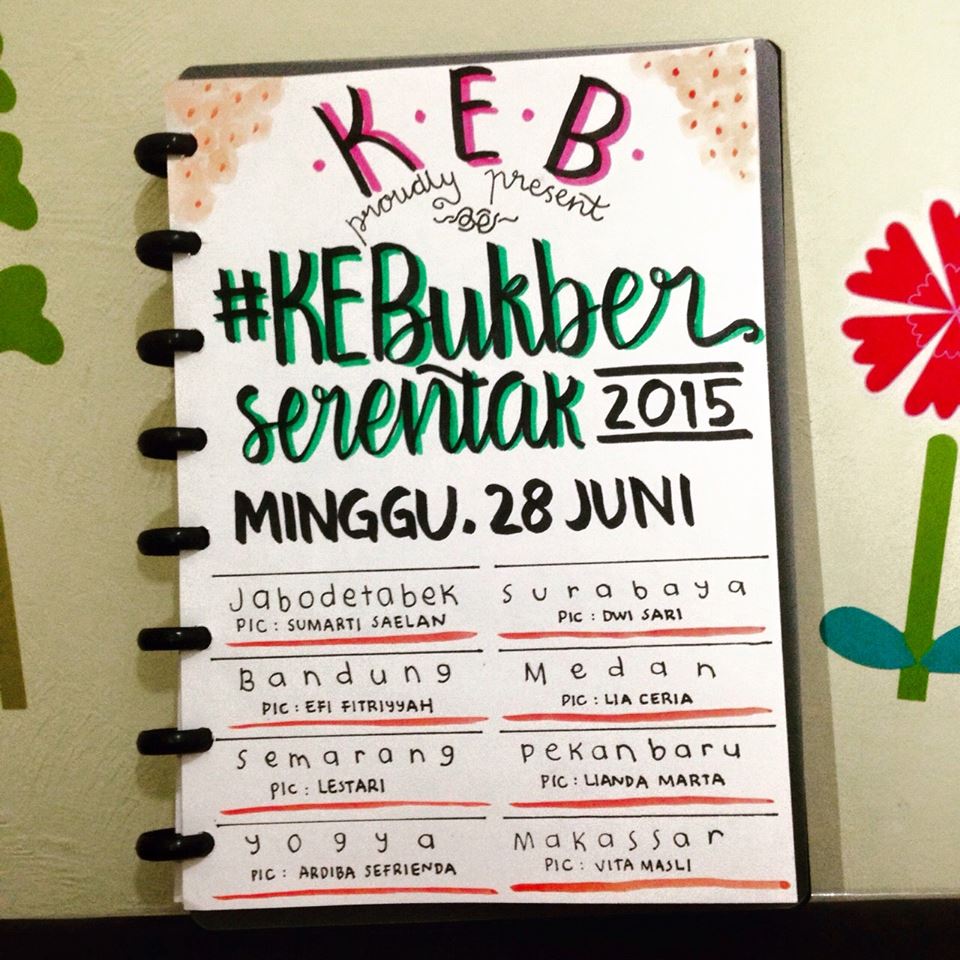 K·E·B
proudly present
#KEBukber
serentak 2015
MINGGU. 28 JUNI
Jabodetabek
PIC : SUMARTI SAELAN
Surabaya
PIC : DWI SARI
Bandung
PIC : EFI FITRIYYAH
Medan
PIC : LIA CERIA
Semarang
PIC : LESTARI
Pekanbaru
PIC : LIANDA MARTA
Yogya
PIC : ARDIBA SEFRIENDA
Makassar
PIC : VITA MASLI